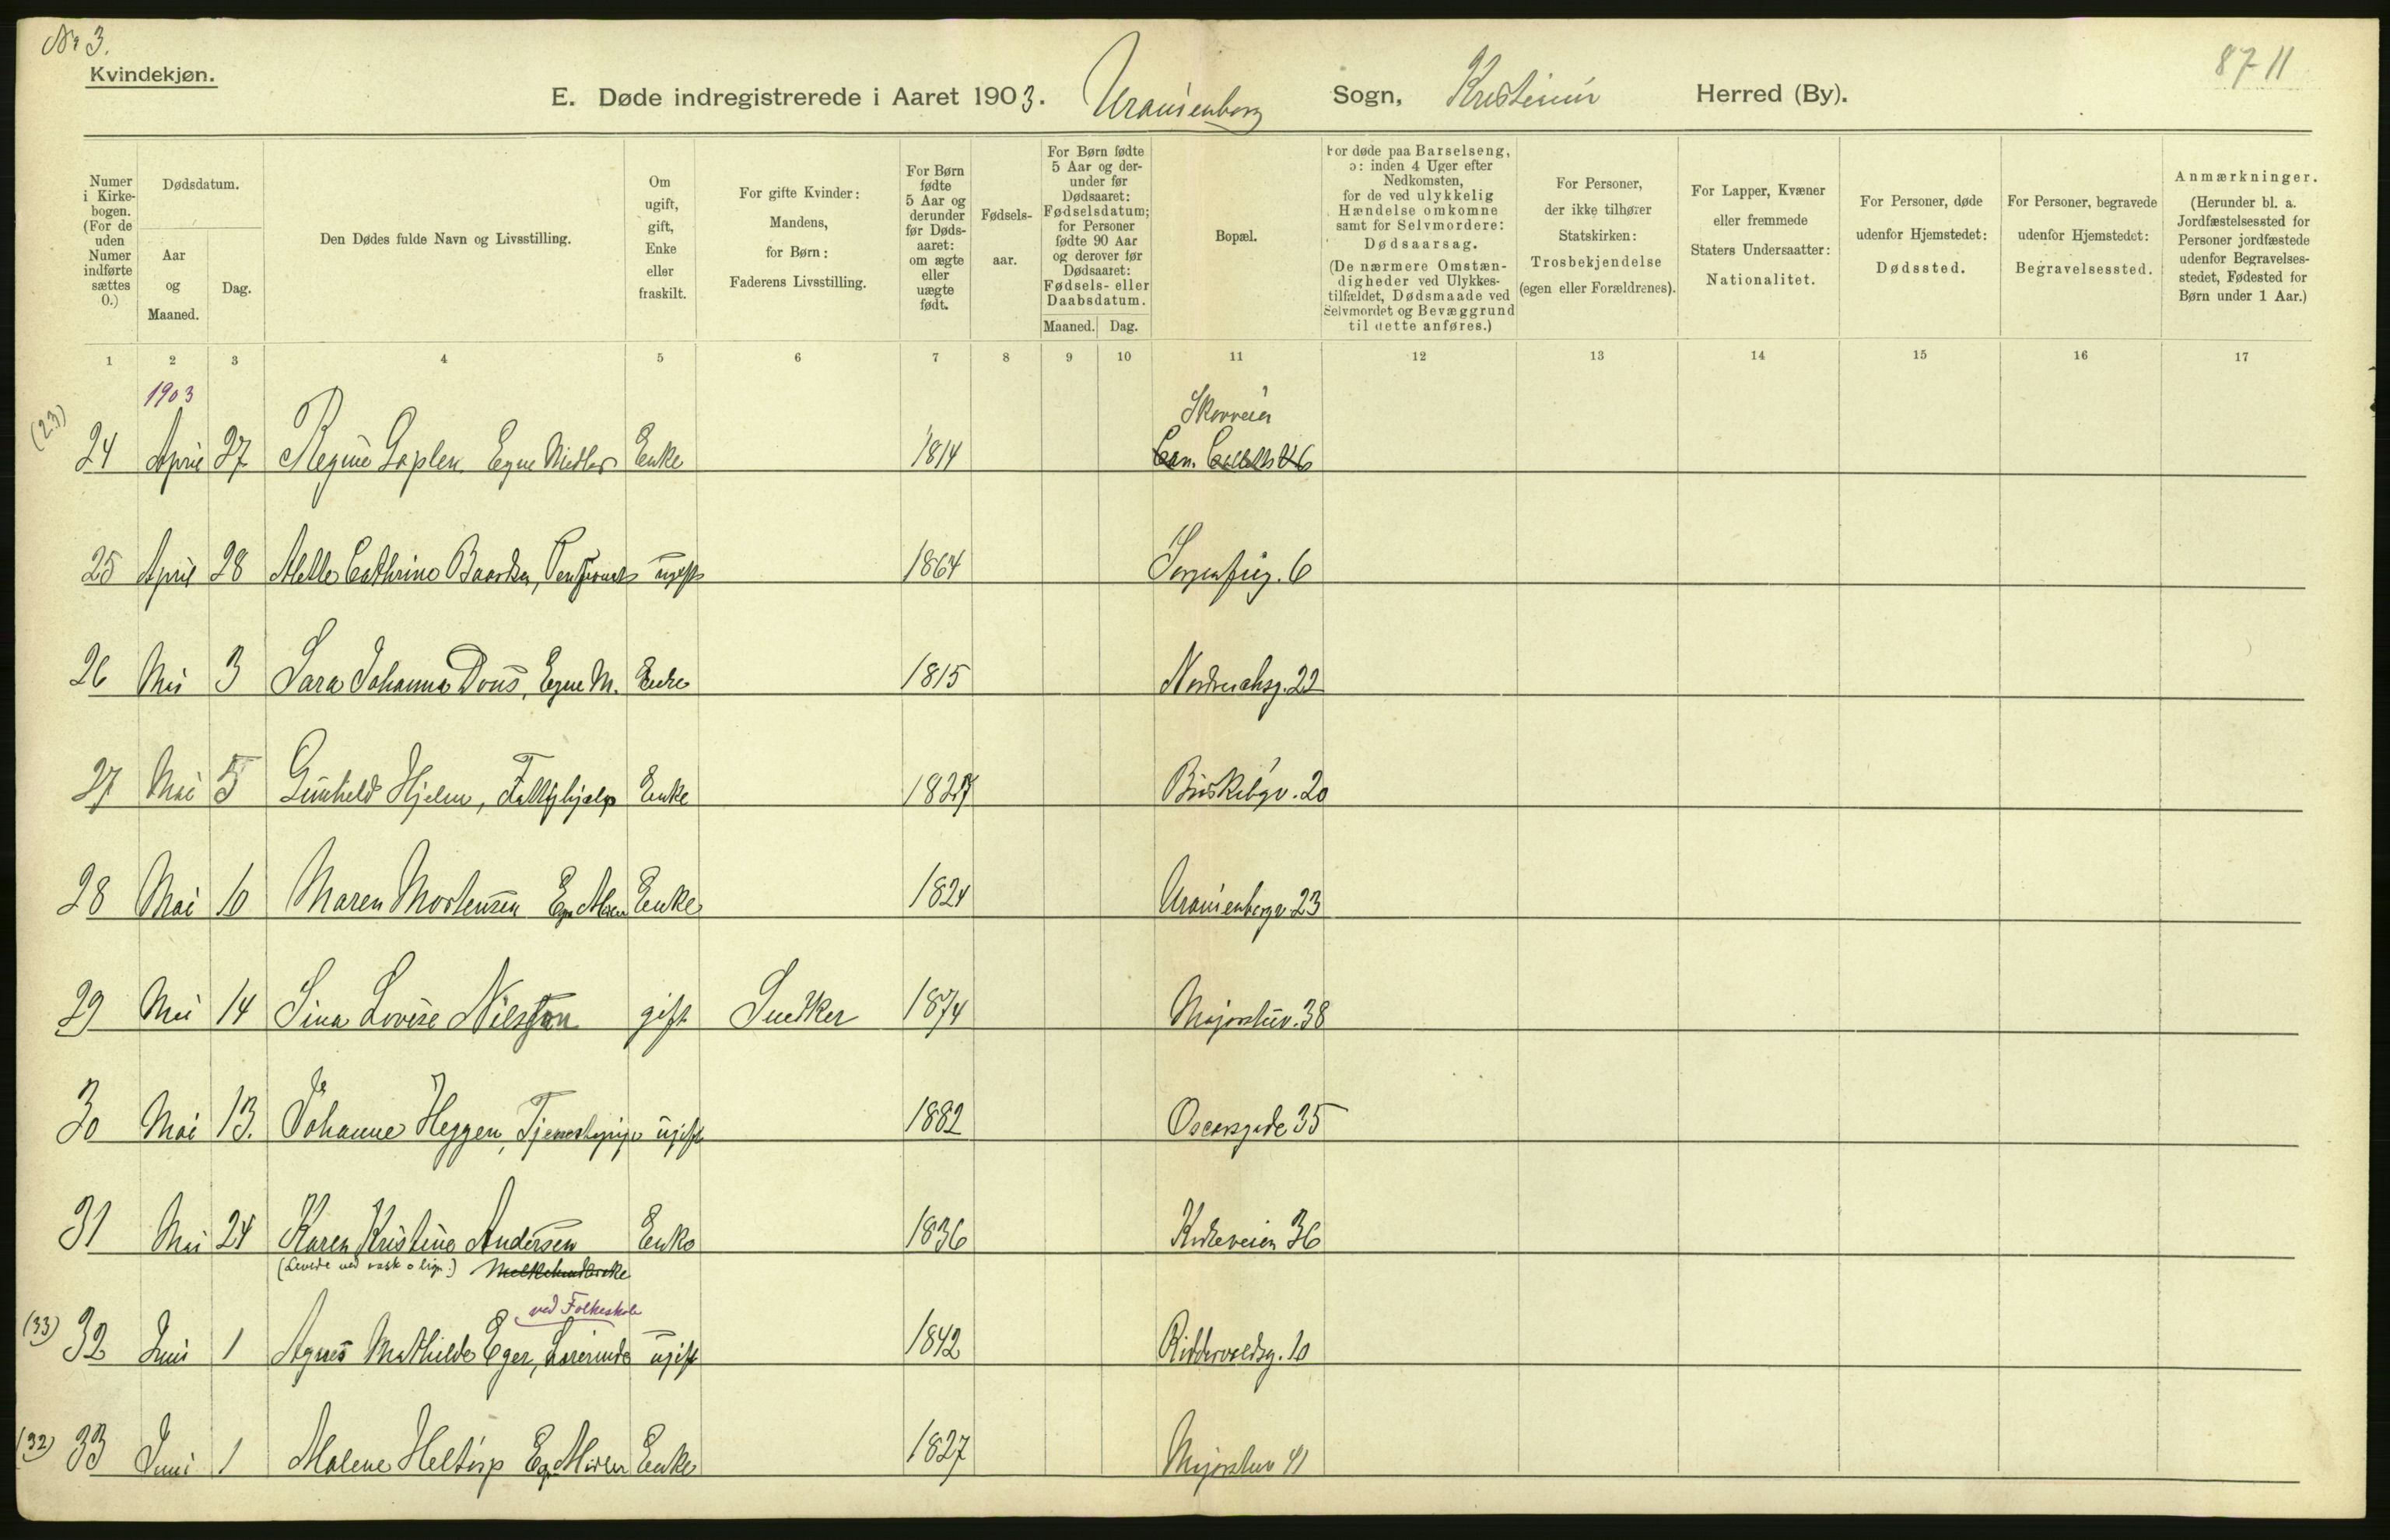 No 3.
Kvindekjøn.
87-11
E. Døde indregistrerede i Aaret 1903. Uranienborg Sogn, Kristiania Herred (By).
Numer i Kirkebogen. (For de uden Numer indførte sættes 0.)
Dødsdatum.
Aar og Maaned.
Dag.
Den Dødes fulde Navn og Livsstilling.
Om ugift, gift, Enke eller fraskilt.
For gifte Kvinder: Mandens, for Børn: Faderens Livsstilling.
For Børn fødte 5 Aar og derunder før Dødsaaret: om ægte eller uægte født.
Fødselsaar.
For Børn fødte 5 Aar og derunder før Dødsaaret: Fødselsdatum; for Personer fødte 90 Aar og derover før Dødsaaret: Fødsels- eller Daabsdatum.
Maaned. Dag.
Bopæl.
For døde paa Barselseng, ɔ: inden 4 Uger efter Nedkomsten, for de ved ulykkelig Hændelse omkomne samt for Selvmordere: Dødsaarsag. (De nærmere Omstændigheder ved Ulykkestilfældet, Dødsmaade ved Selvmordet og Bevæggrund til dette anføres.)
For Personer, der ikke tilhører Statskirken: Trosbekjendelse (egen eller Forældrenes).
For Lapper, Kvæner eller fremmede Staters Undersaatter: Nationalitet.
For Personer, døde udenfor Hjemstedet: Dødssted.
For Personer, begravede udenfor Hjemstedet: Begravelsessted.
Anmærkninger. (Herunder bl. a. Jordfæstelsessted for Personer jordfæstede udenfor Begravelsesstedet, Fødested for Børn under 1 Aar.)
1 2 3 4 5 6 7 8 9 10 11 12 13 14 15 16 17
1903
(23) 24 April 27 Regine Gaplen Egne Midler Enke 1814 Skovveien 6
25 April 28 Mette Cathrine Baardsen, ugift 1864 Sorgenfrig. 6
26 Mai 3 Sara Johanna Dous, Egne M. Enke 1815 22
27 Mai 5 Gunhild Hjelm, Fattighjælp Enke 1827 Briskebyv. 20
28 Mai 10 Maren Mortensen Egne Midler Enke 1824 Uranienborgv. 23
29 Mai 14 Sina Lovise Nilsson gift Snedker 1874 Majorstuv. 38
30 Mai 13. Johanne Heggen, Tjenestepige ugift 1882 Oscarsgade 35
31 Mai 24 Karen Kristine Andersen Enke 1836 Kirkeveien 36
(Levede ved vask o lign.) Melkehandlerske
ved Folkeskole
(33) 32 Juni 1 Agnes Mathilde Eger, Lærerinde ugift 1842 Riddervoldsg. 10
(32) 33 Juni 1 Malene Heltorp Egne Midler Enke 1827 Majorstuv 41